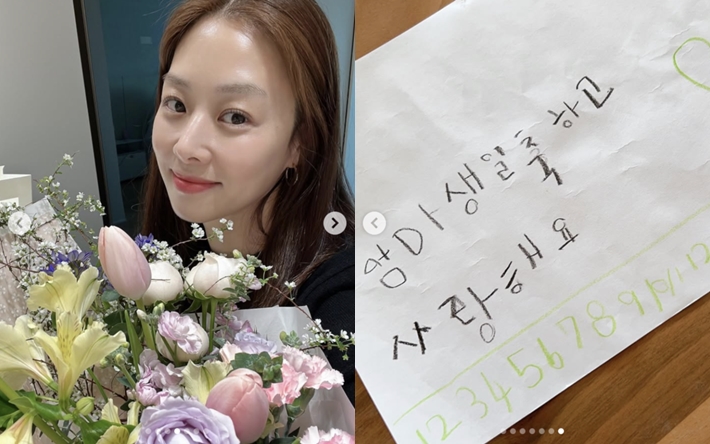 엄마 생일 축하고
사랑해요
12345678910 11 12